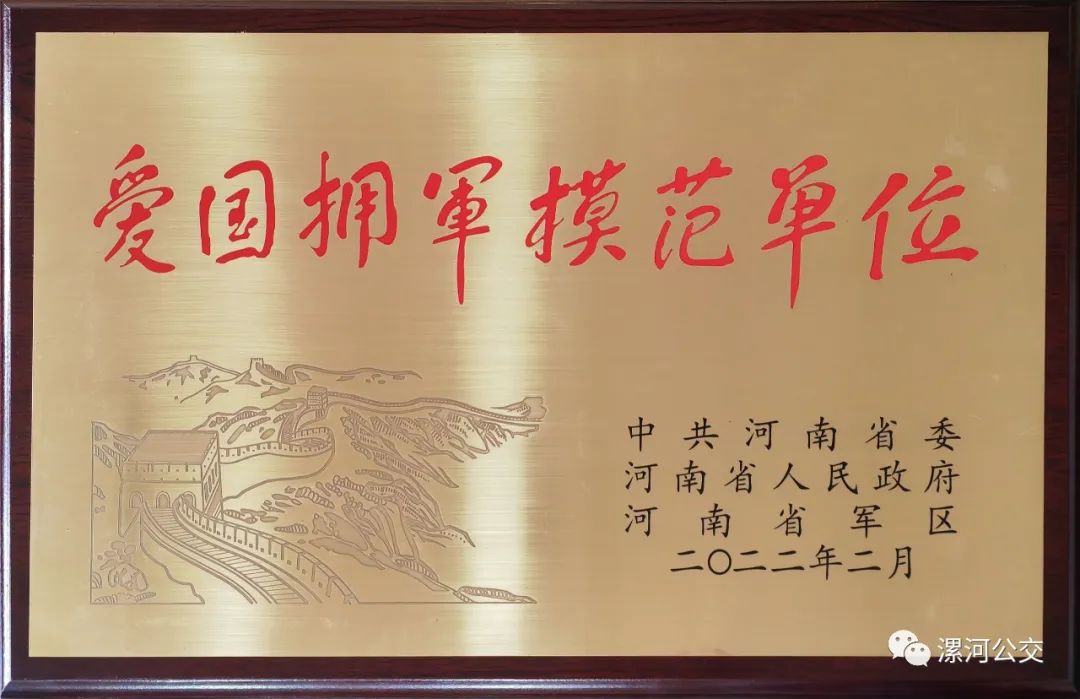 爱国拥軍模范单位
中共河南省委
河南省人民政府
河南省军区
二〇二二年二月
漯河公交